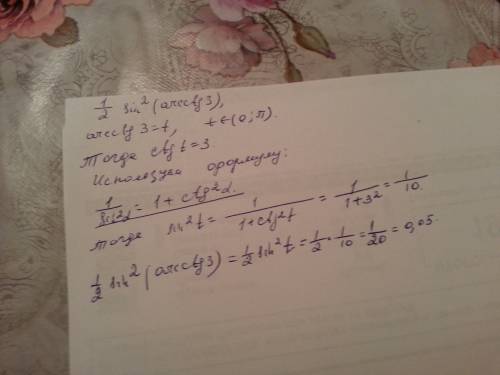 1/2 sin²(arcctg 3),
arcctg 3 = t, t ∈ (0; π).
Тогда ctg t = 3.
Используя формулу:
1/sin²α = 1 + ctg²α.
тогда sin²t = 1/(1+ctg²t) = 1/(1+3²) = 1/10.
1/2 sin²(arcctg 3) = 1/2 sin²t = 1/2 · 1/10 = 1/20 = 0,05.